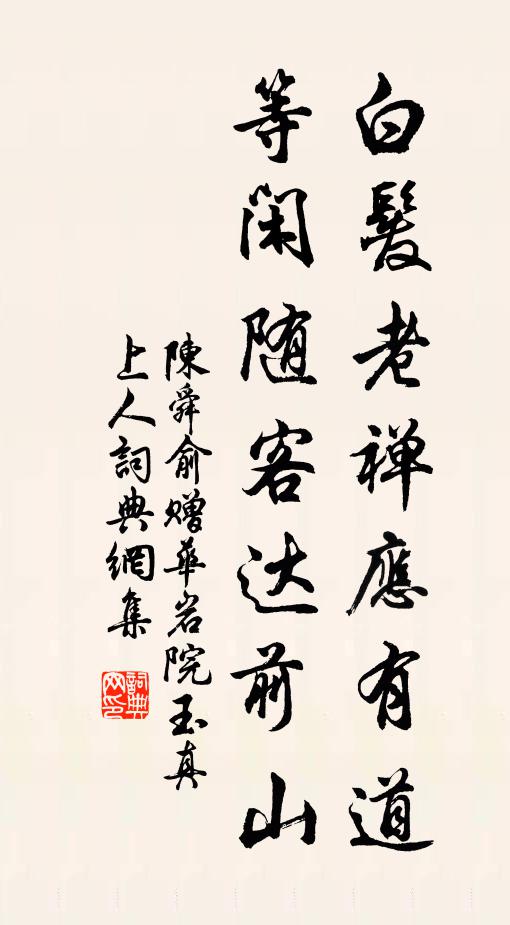 白髮老禅應有道
等闲随客达前山
陳舜俞赠華岩院玉真
上人詞典網集
詞典
网印